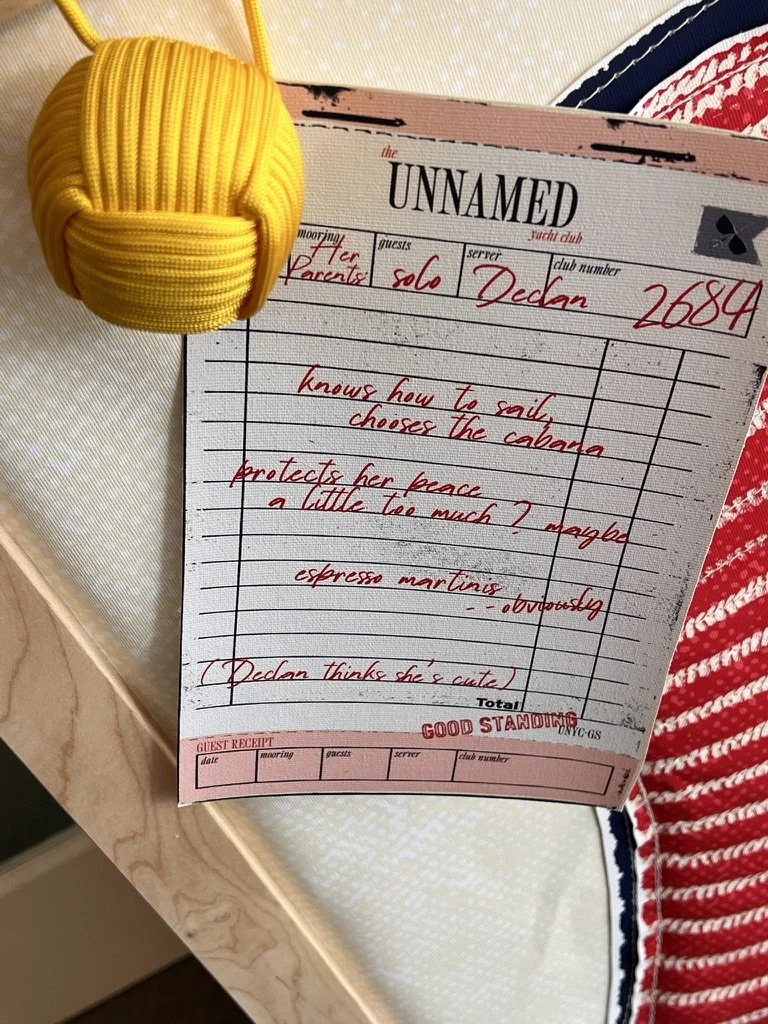 the
UNNAMED
yacht club
mooring guests server club number
Her Parents' solo Declan 2684
knows how to sail,
chooses the cabana
protects her peace
a little too much? maybe
espresso martinis
--obviously
(Declan thinks she's cute)
Total
GOOD STANDING
UNYC-GS
GUEST RECEIPT
date mooring guests server club number